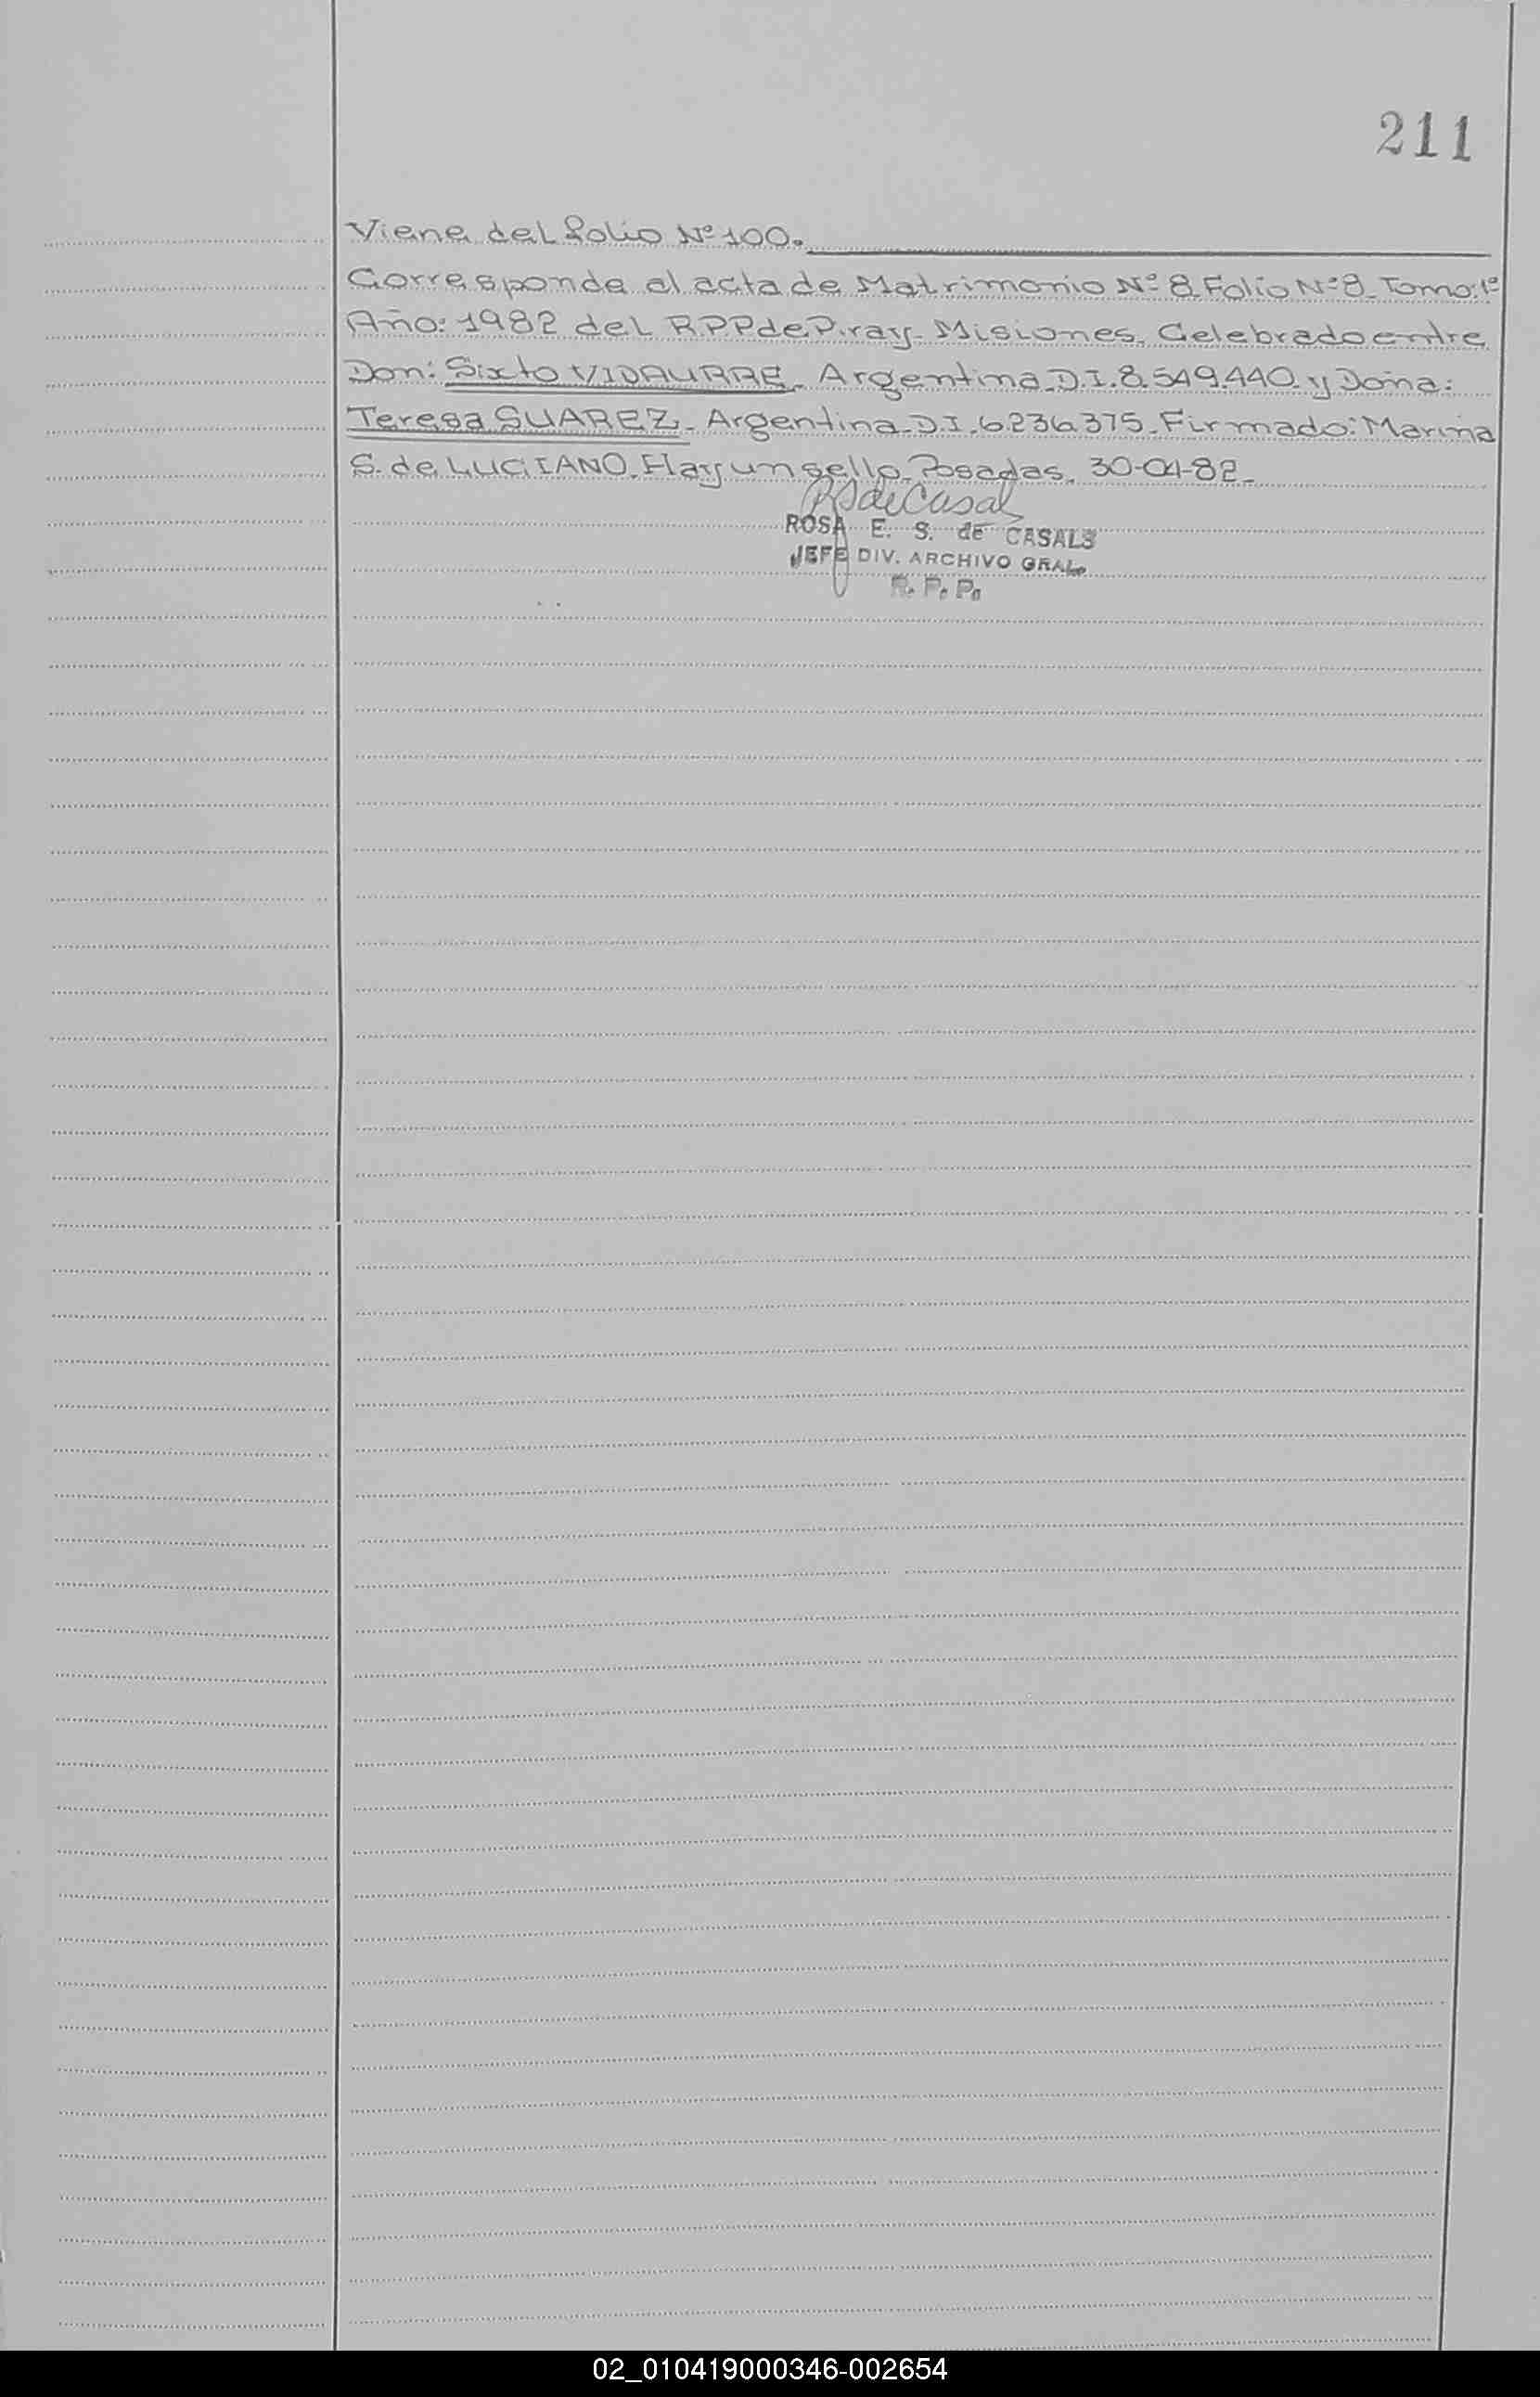 211
Viene del folio Nº 100.
Corresponde al acta de Matrimonio Nº 8 Folio Nº 8 Tomo: 1º
Año: 1982 del R.P.P de P.ray - Misiones. Celebrado entre
Don: Sixto VIDAURRE - Argentina - D.I. 8.549.440. y Doña:
Teresa SUAREZ - Argentina - D.I. 6.236.375 - Firmado: Marina
S. de LUCIANO. Hay un sello - Posadas, 30-04-82 -
RS de Casal
ROSA E. S. de CASALS
JEFE DIV. ARCHIVO GRAL.
R. P. P.
02_010419000346-002654